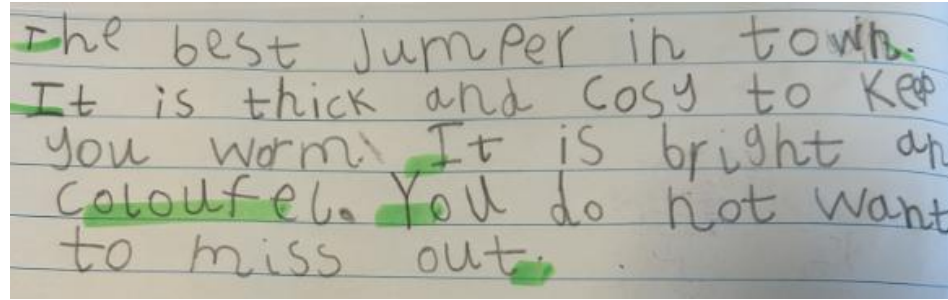 The best jumper in town.
It is thick and cosy to keep
you worm. It is bright an
coloufel. You do not want
to miss out.